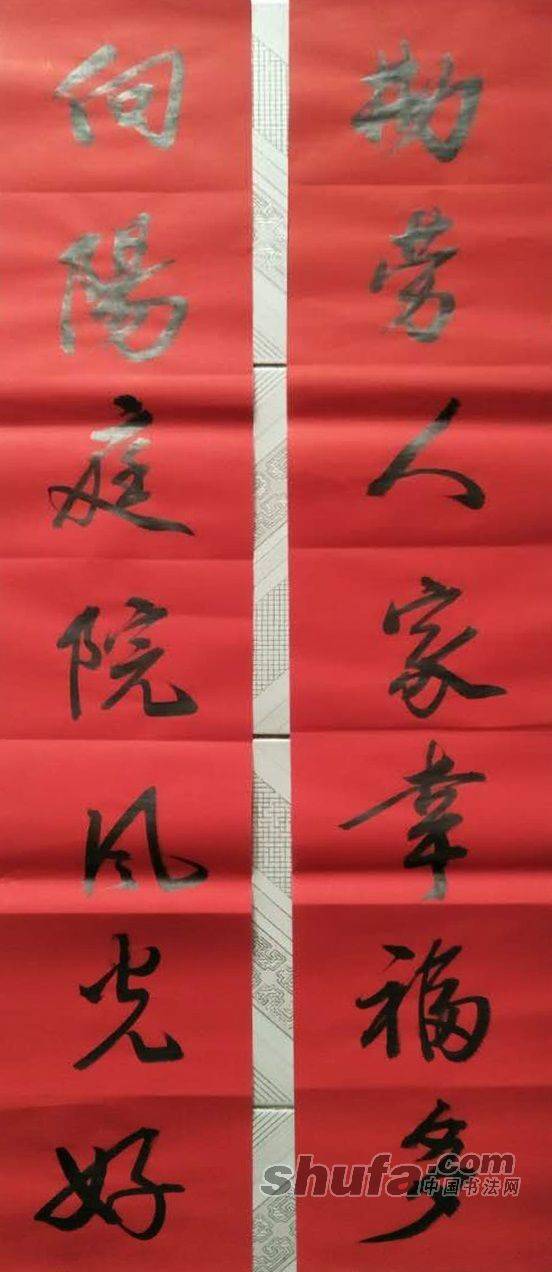 勤劳人家幸福多
向陽庭院风光好
shufa.com
中国书法网